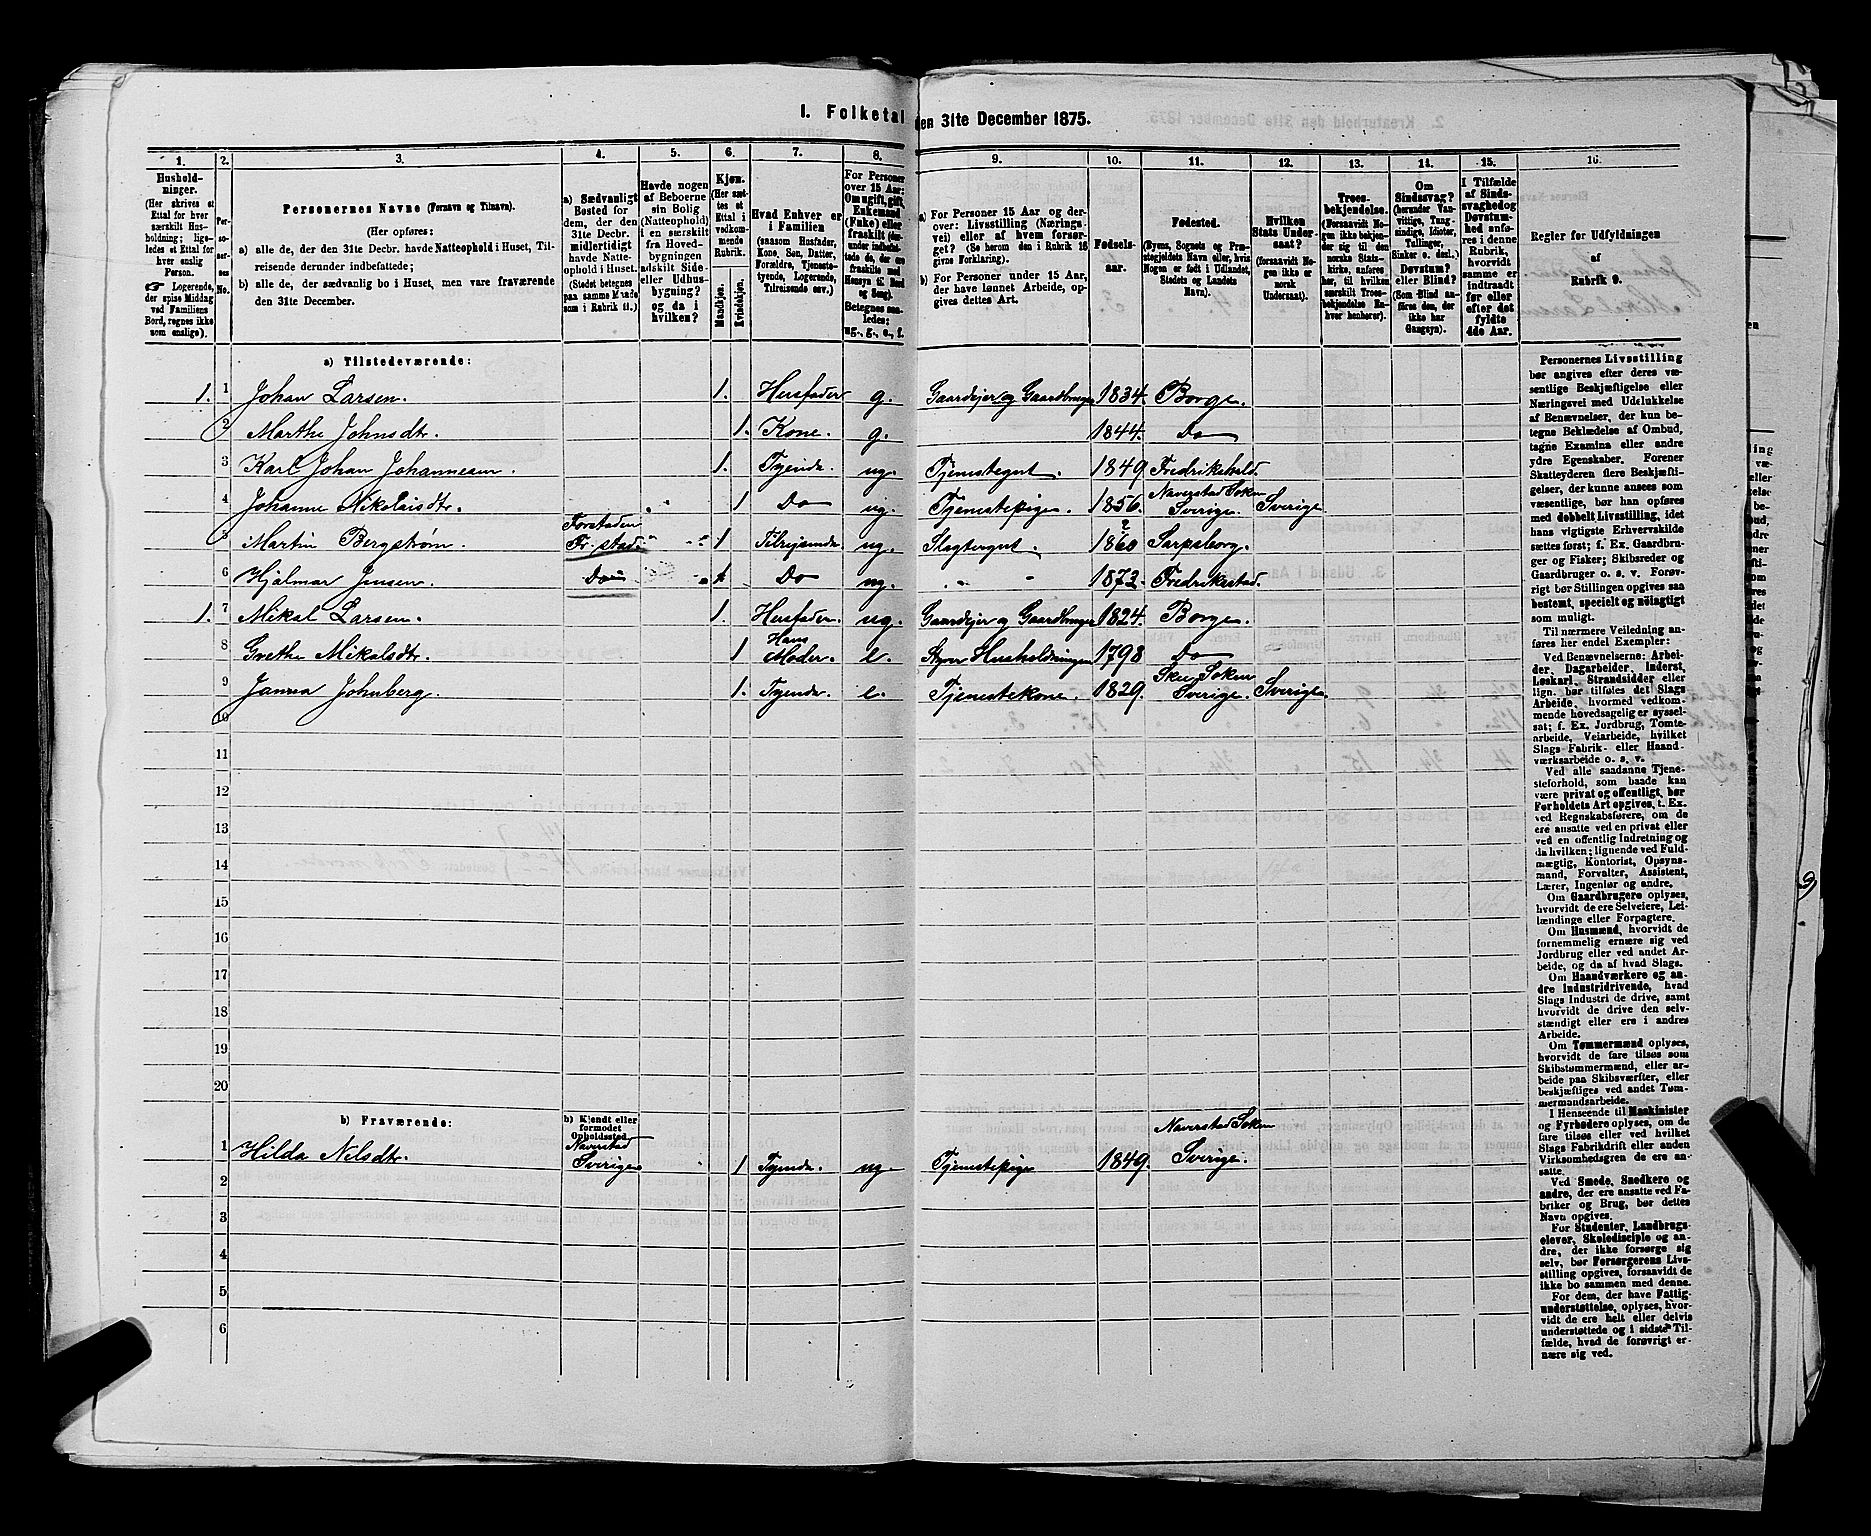 1. Folketal den 31te December 1875.
1. 2. 3. 4. 5. 6. 7. 8. 9. 10. 11. 12. 13. 14. 15. 16.
Hushold-
ninger.
(Her skrives et
Ettal for hver
særskilt Hus-
holdning; lige-
ledes et Ettal for
hver enslig
Person.
☞ Logerende,
der spise Middag
ved Familiens
Bord, regnes ikke
som enslige).
Per-
so-
ner-
nes
No.
Personernes Navne (Fornavn og Tilnavn).
(Her opføres:
a) alle de, der den 31te Decbr. havde Natteophold i Huset, Til-
reisende derunder indbefattede;
b) alle de, der sædvanlig bo i Huset, men vare fraværende
den 31te December.
a) Sædvanligt
Bosted for
dem, der den
31te Decbr.
midlertidigt
havde Natte-
ophold i Huset.
(Stedet betegnes
paa samme Maade
som i Rubrik 11.)
Havde nogen
af Beboerne
sin Bolig
(Natteophold)
i en særskilt
fra Hoved-
bygningen
adskilt Side-
eller Udhus-
bygning?
og da i
hvilken?
Kjøn.
(Her sæt-
tes et
Ettal i
vedkom-
mende
Rubrik.
Mandkjøn.
Kvindekjøn.
Hvad Enhver er
i Familien
(saasom Husfader,
Kone, Søn, Datter,
Forældre, Tjeneste-
tyende, Logerende,
Tilreisende osv.)
For Personer
over 15 Aar:
Om ugift, gift,
Enkemand
(Enke) eller
fraskilt
Betegnes saa-
ledes:
ug., g., e., f.
a) For Personer 15 Aar og der-
over: Livsstilling (Nærings-
vei) eller af hvem forsør-
get? (Se herom den i Rubrik 16
givne Forklaring).
b) For Personer under 15 Aar,
der have lønnet Arbeide, op-
gives dettes Art.
Fødsels-
aar.
Fødested.
(Byens, Sognets og Præ-
stegjeldets Navn eller, hvis
Nogen er født i Udlandet,
Stedets og Landets
Navn).
Hvilken
Stats Under-
saat?
(forsaavidt No-
gen ikke er
norsk
Undersaat).
Troes-
bekjendelse.
(Forsaavidt No-
gen ikke bekjen-
der sig til den
norske Stats-
kirke, anføres
her, til hvilken
særskilt Troes-
bekjendelse En-
hver henhører).
Om
Sindssvag?
(herunder Van-
vittige, Tung-
sindige, Idioter,
Tullinger,
Sinker o. desl.)
Døvstum?
eller Blind?
(Som Blind an-
føres den, der
ikke har
Gangsyn).
I Tilfælde
af Sinds-
svaghed og
Døvstum-
hed anfø-
res i denne
Rubrik,
hvorvidt
samme er
indtraadt
før eller
efter det
fyldte
4de Aar.
Regler for Udfyldningen
af
Rubrik 9.
a) Tilstedeværende:
1. 1 Johan Larsen. 1. Husfader g. Gaardejer og Gaardbruger 1834. Borge.
2 Marthe Johnsdtr. 1. Kone. g. 1844. Do
3 Karl Johan Johannesen. 1. Tyende. ug. Tjenestegut. 1849. Fredrikshald.
4 Johanne Nikolaisdtr. 1 Do ug. Tjenestepige. 1856. Naverstad Soken Sverige. Sverige
5 Martin Bergstrøm. Forstaden Fr. stad. 1 Tilreisende ug. Slagtergut. 1860 ? Sarpsborg.
6 Hjalmar Jensen. Do 1 Do ug. " " 1873. Fredrikstad.
1. 7 Mikal Larsen. 1. Husfader. ug. Gaardejer og Gaardbruger 1824. Borge.
8 Grethe Mikalsdtr. 1 Hans Moder. e. Styrer Husholdningen 1798 Do
9 Janna Johnberg. 1. Tyende. e. Tjenestekone. 1829. Skee Soken Sverige. Sverige.
10
11
12
13
14
15
16
17
18
19
20
b) Fraværende:
b) Kjendt eller
formodet
Opholdssted.
1 Hilda Nilsdtr. Naverstad Sverige 1 Tyende. ug. Tjenestepige 1849. Naverstad Soken Sverige.
2
3
4
5
6
Personernes Livsstilling
bør angives efter deres væ-
sentlige Beskjæftigelse eller
Næringsvei med Udelukkelse
af Benævnelser, der kun be-
tegne Beklædelse af Ombud,
tagne Examina eller andre
ydre Egenskaber. Forener
Skatteyderen flere Beskjæfti-
gelser, der kunne ansees som
væsentlige, bør han opføres
med dobbelt Livsstilling, idet
hans vigtigste Erhvervskilde
sættes først; f. Ex. Gaardbru-
ger og Fisker; Skibsreder og
Gaardbruger o. s. v. Forøv-
rigt bør Stillingen opgives saa
bestemt, specielt og nøiagtigt
som muligt.
Til nærmere Veiledning an-
føres her endel Exempler:
Ved Benævnelserne: Arbei-
der, Dagarbeider, Inderst,
Løskarl, Strandsidder eller
lign. bør tilføies det Slags
Arbeide, hvormed vedkom-
mende hovedsagelig er syssel-
sat; f. Ex. Jordbrug, Tomte-
arbeide, Veiarbeide, hvilket
Slags Fabrik- eller Haand-
værksarbeide o. s. v.
Ved alle saadanne Tjene-
steforhold, som baade kan
være privat og offentligt, bør
Forholdets Art opgives, t. Ex.
ved Regnskabsførere, om de
ere ansatte ved en privat eller
ved en offentlig Indretning og
da hvilken; lignende ved Fuld-
mægtig, Kontorist, Opsyns-
mand, Forvalter, Assistent,
Lærer, Ingeniør og andre.
Om Gaardbrugere oplyses,
hvorvidt de ere Selveiere, Lei-
lændinge eller Forpagtere.
Om Husmænd, hvorvidt de
fornemmelig ernære sig ved
Jordbrug eller ved andet Ar-
beide, og da af hvad Slags.
Om Haandværkere og an-
dre Industridrivende, hvad
Slags Industri de drive, samt
hvorvidt de drive den selv-
stændigt eller ere i andres
Arbeide.
Om Tømmermænd oplyses,
hvorvidt de fare tilsøs som
Skibstømmermænd, eller ar-
beide paa Skibsværfter, eller
beskjæftiges ved andet Tøm-
mermandsarbeide.
I Henseende til Maskinister
og Fyrbødere oplyses, om de
fare tilsøs eller ved hvilket
Slags Fabrikdrift eller anden
Virksomhedsgren de ere an-
satte.
Ved Smede, Snedkere og
andre, der ere ansatte ved Fa-
briker og Brug, bør dettes
Navn opgives.
For Studenter, Landbrugs-
elever, Skoledisciple og an-
dre, der ikke forsørge sig
selv, bør Forsørgerens Livs-
stilling opgives, forsaavidt de
ikke bo sammen med denne.
For dem, der have Fattig-
understøttelse, oplyses, hvor-
vidt de ere helt eller delvis
understøttede og i sidste Til-
fælde, hvad de forøvrigt er-
nære sig ved.